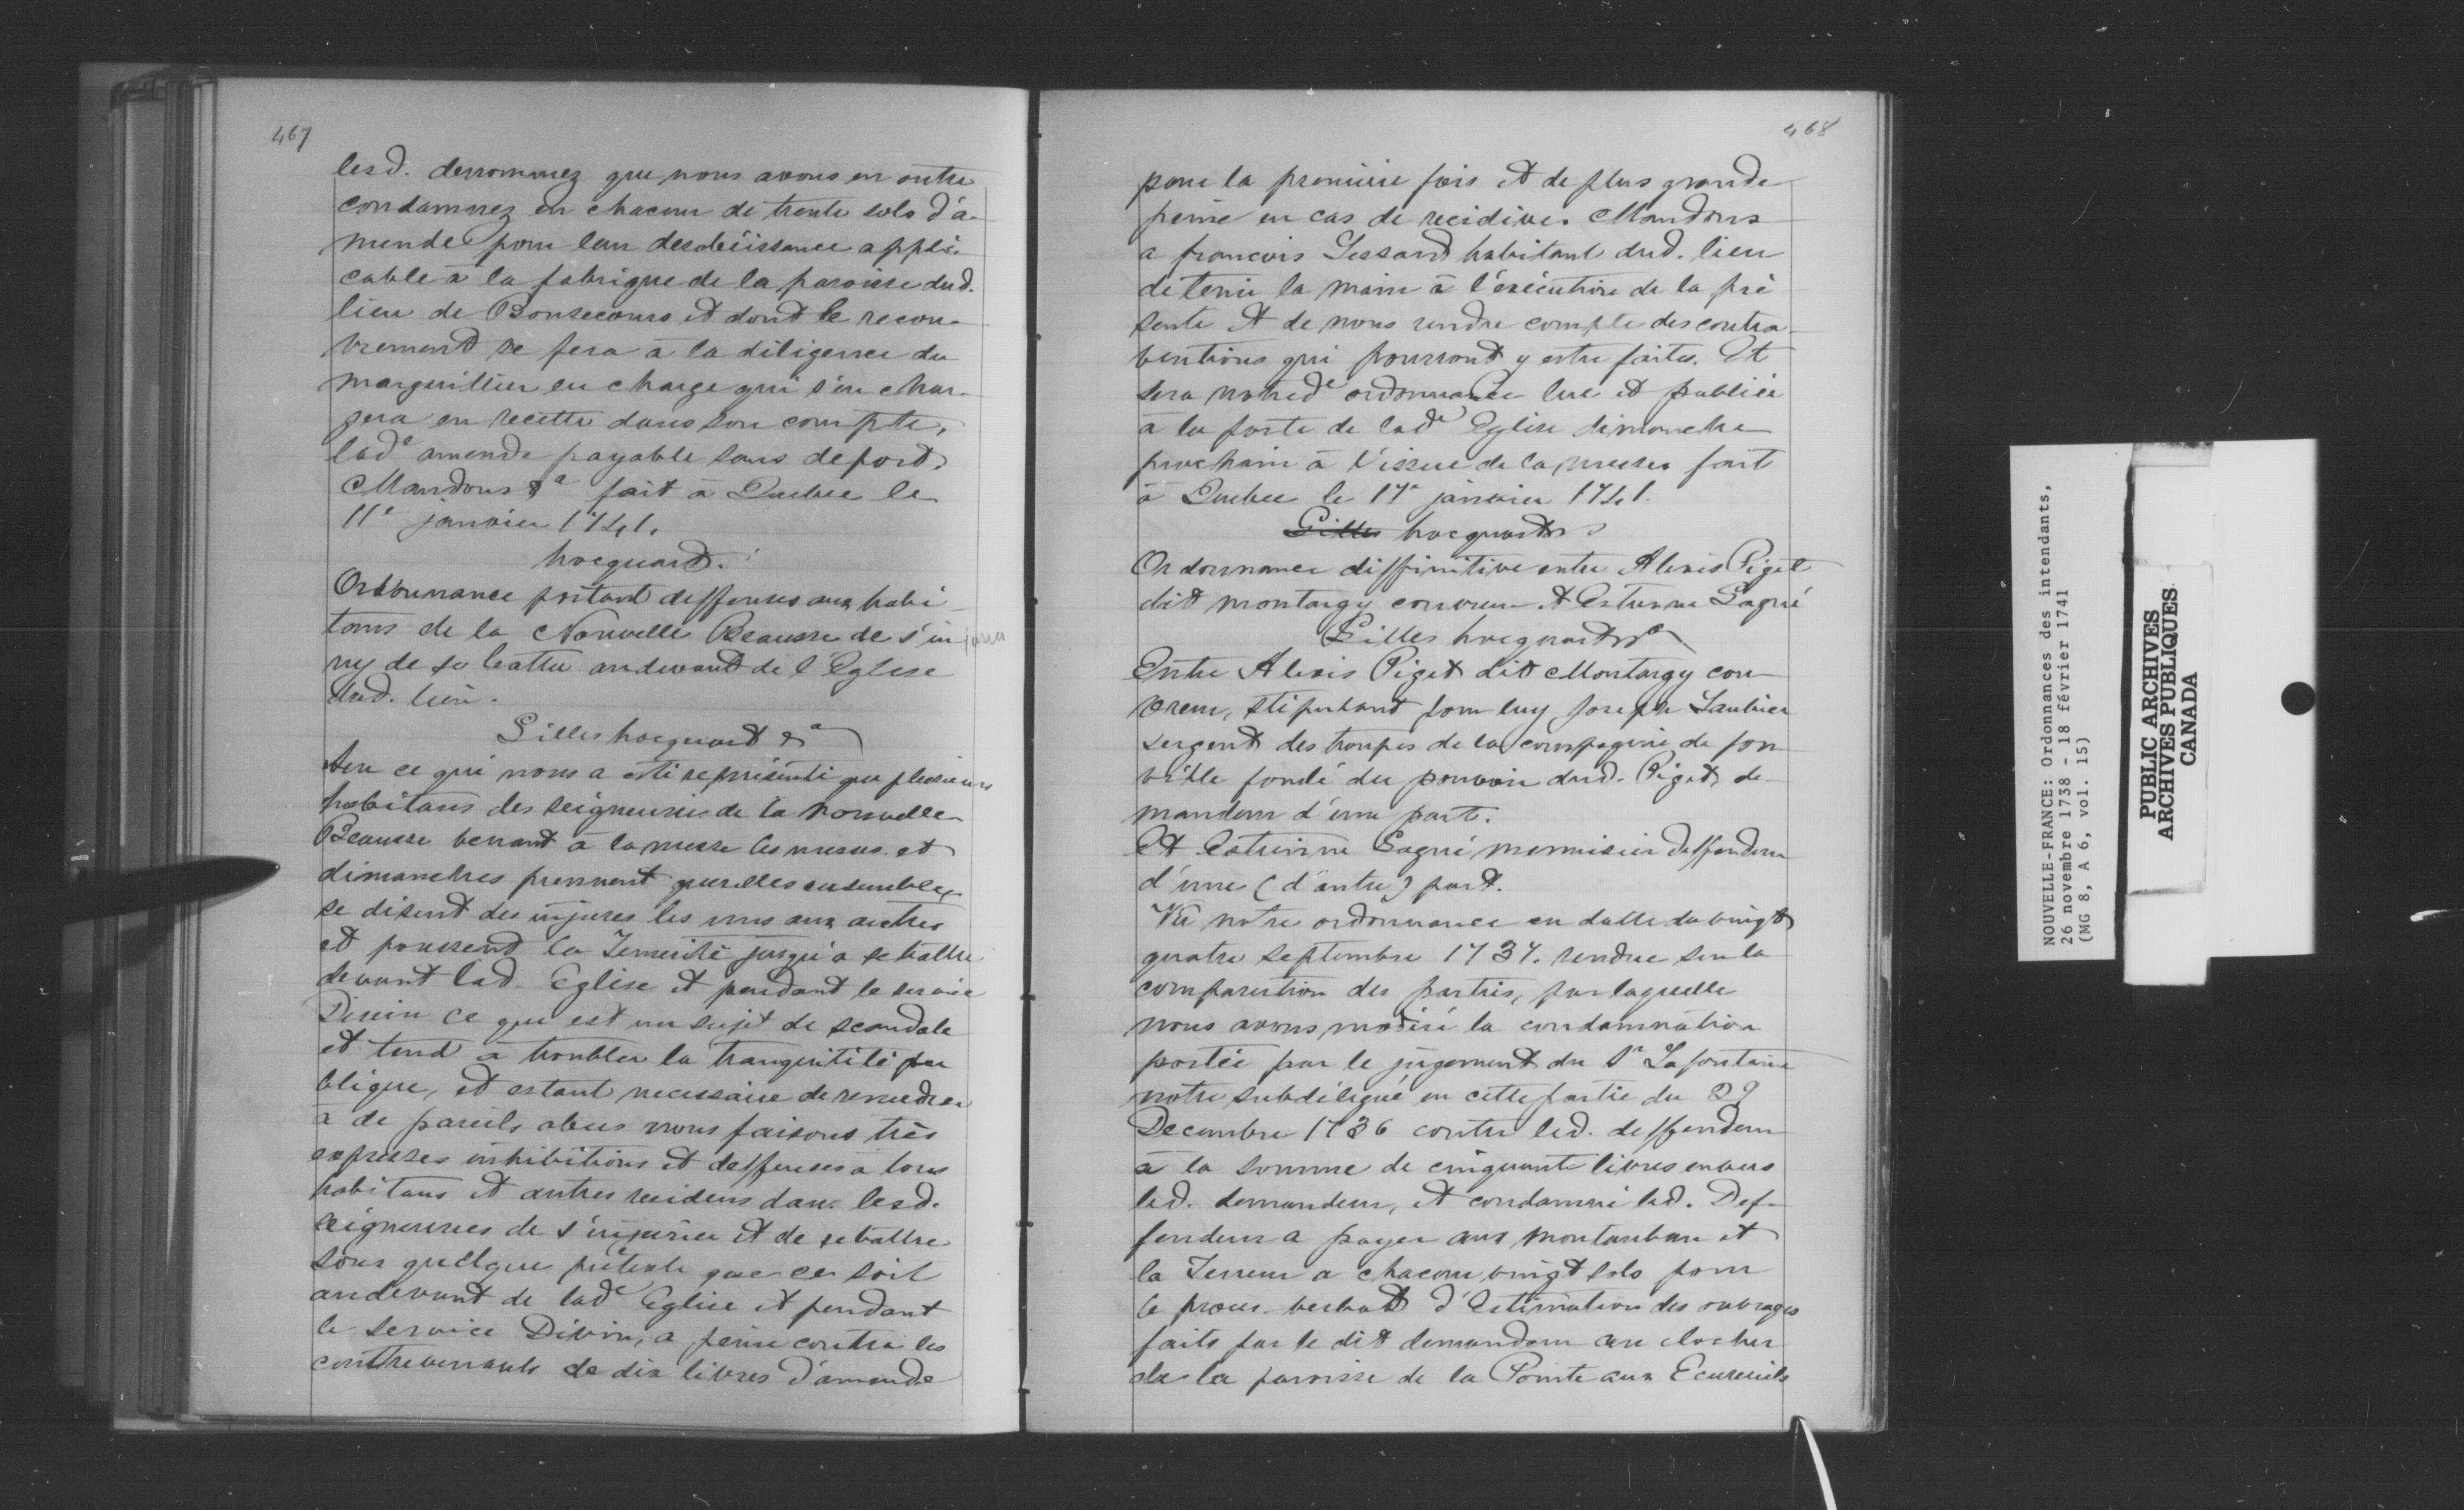 467
lesd. denommez que nous avons en outre
condamnez en chacun de trente sols d'a-
mende pour leur desobéissance appli-
cable à la fabrique de la paroisse dud.
lieu de Bonsecours et dont le recou-
vrement se fera à la diligence du
marguillier en charge qui s'en char-
gera en recette dans son compte,
lade amende payable sans deport.
Mandons &a fait à Quebec le
11e janvier 1741.
hocquart.
Ordonnance portant deffenses aux habi-
tans de la Nouvelle Beausse de s'in jurier
ny de se battre audevant de l'Eglise
dud. lieu.
Gilles hocquart &a
Sur ce qui nous a esté représenté que plusieurs
habitans des seigneuries de la nouvelle
Beausse venant à la messe les et
dimanches prennent querelles ensemble,
se disent des injures les uns aux autres
et poussent la Temerité jusqu'a se battre
devant lad. Eglise et pendant le service
Divin ce que est un sujet de scandale
et tend à troubler la tranquilité pu
blique, et estant necessaire de remedier
à de pareils abus nous faisons très
expresses inhibitions et deffenses à tous
habitans et autres residens dans lesd.
seigneuries de s'injurier et de se battre
sous quelque prétexte que ce soit
audevant de lade Eglise et pendant
le service Divin, a peine contre les
contrevenants de dix livres d'amende
468
pour la première fois et de plus grande
peine en cas de recidive. Mandons
a francois Lessard habitant dud. lieu
de tenir la main à l'exécution de la pré
sente et de nous rendre compte des contra-
ventions qui pourront y estre faites. Et
sera notred e ordonnance lue et publiée
à la porte de lade Eglise dimanche
prochain à l'issue de la messe fait
à Quebec le 17e janvier 1741.
Gilles hocquart
Ordonnance diffinitive entre Alexis Piget
dit montargy couvreur et Estienne Gagné
Gilles hocquart &a
Entre Alexis Piget dit Montargy cou-
vreur, stipulant pour luy Joseph Laubier
sergent des troupes de la compagnie de fon
ville fondé du pouvoir dud. Piget, de-
mandeur d'une part.
Et Estienne Gagné menuisier deffendeur
d'une (d'autre) part.
Vu notre ordonnance en datte du vingt
quatre septembre 1737. rendue sur la
comparution des parties, par laquelle
nous avons modéré la condamnation
portée par le jugement du Sr Lafontaine
notre subdélégué en cette partie du 29
Decembre 1736 contre led. deffendeur
à la somme de cinquante livres envers
led. demandeur, et condamné led. Def-
fendeur a payer aux montauban et
la Terreur a chacun vingt sols pour
le proces verbal d'Estimation des ouvrages
faits par le dit demandeur au clocher
de la paroisse de la Pointe aux Ecureuils
NOUVELLE-FRANCE: Ordonnances des intendants,
26 novembre 1738 - 18 février 1741
(MG 8, A 6, vol. 15)
PUBLIC ARCHIVES
ARCHIVES PUBLIQUES
CANADA